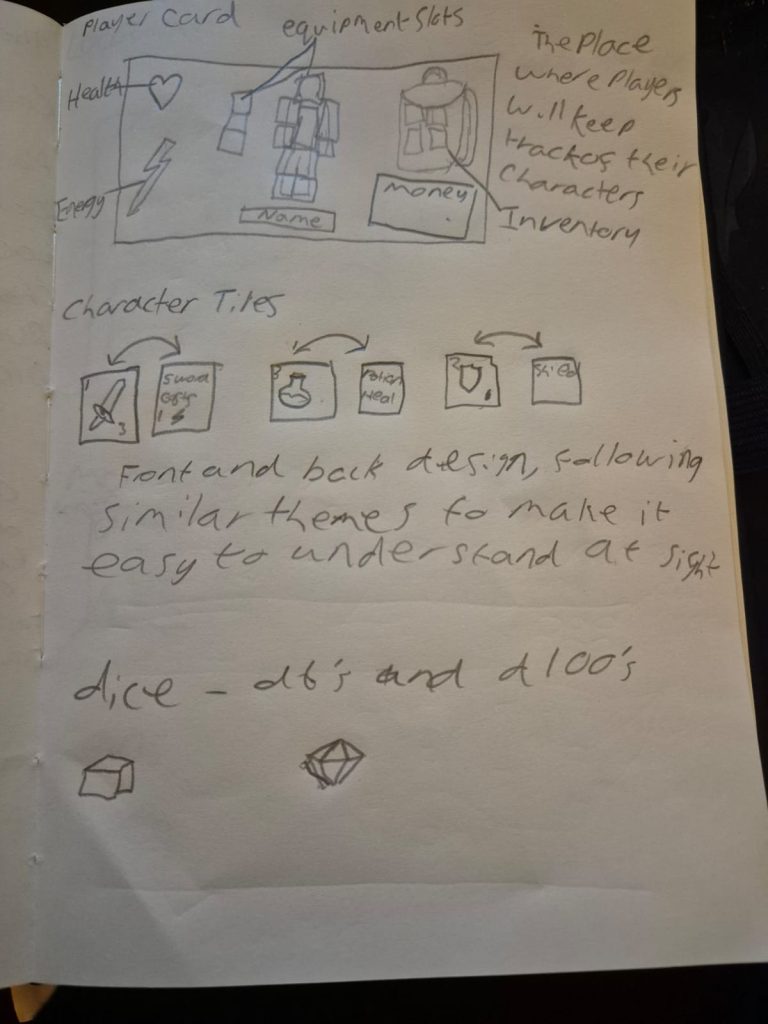 Player Card
equipment slots
Health
Energy
Name
Money
Inventory
The Place
where Players
will keep
track of their
Characters
Character Tiles
1
3
Sword
1
3
Potion
Heal
2
Front and back design, following
similar themes to make it
easy to understand at sight
dice - d6's and d100's